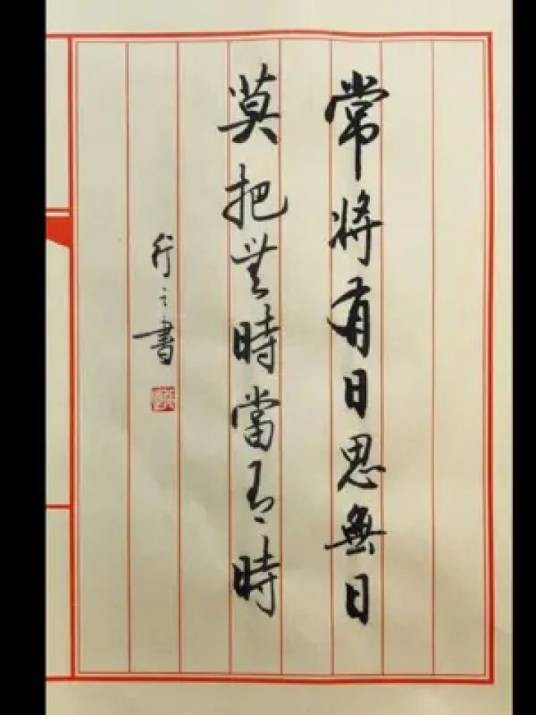 常將有日思無日
莫把無時當有時
行之書